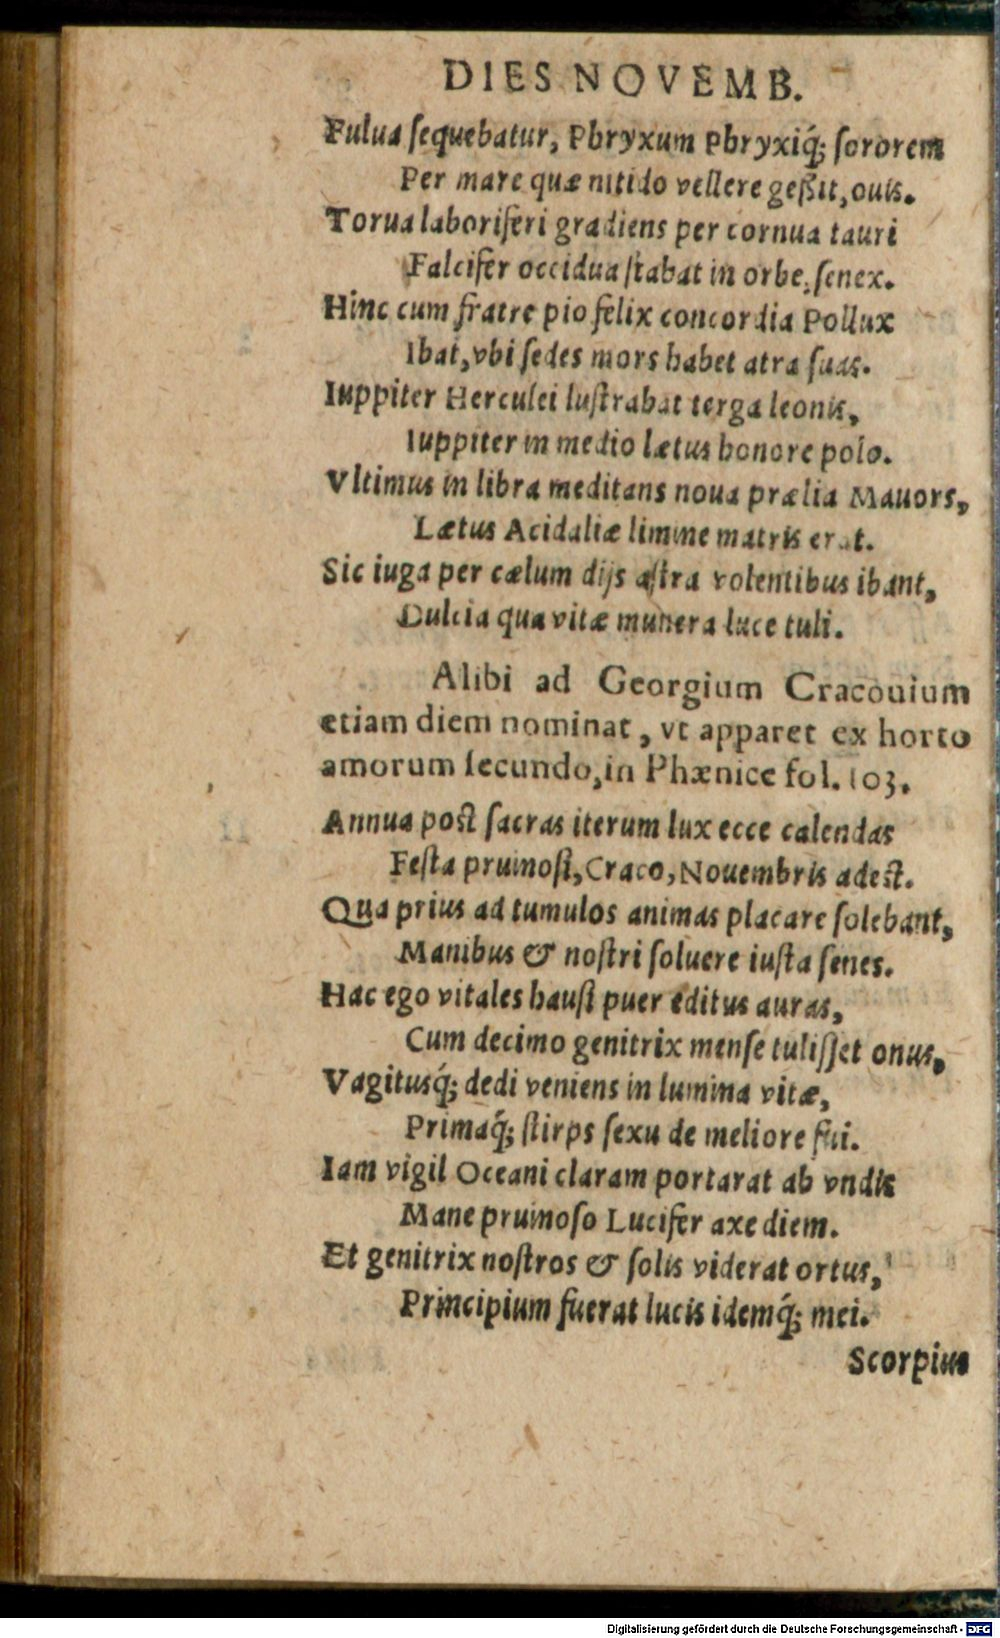 DIES NOVEMB.
Fulua ſequebatur, Phryxum Phryxiq́; ſororem
Per mare quæ nitido vellere geßit, ouis.
Torua laboriferi gradiens per cornua tauri
Falcifer occidua ſtabat in orbe, ſenex.
Hinc cum fratre pio felix concordia Pollux
Ibat, vbi ſedes mors habet atra ſuas.
Iuppiter Herculei luſtrabat terga leonis,
Iuppiter in medio lætus honore polo.
Vltimus in libra meditans noua prælia Mauors,
Lætus Acidaliæ limine matris erat.
Sic iuga per cælum dijs aſtra volentibus ibant,
Dulcia qua vitæ munera luce tuli.
Alibi ad Georgium Cracouium
etiam diem nominat, vt apparet ex horto
amorum ſecundo, in Phænice fol. 103.
Annua poſt ſacras iterum lux ecce calendas
Feſta pruinoſi, Craco, Nouembris adeſt.
Qua prius ad tumulos animas placare ſolebant,
Manibus & noſtri ſoluere iuſta ſenes.
Hac ego vitales hauſi puer editus auras,
Cum decimo genitrix menſe tuliſſet onus,
Vagitusq́; dedi veniens in lumina vitæ,
Primaq́; ſtirps ſexu de meliore fui.
Iam vigil Oceani claram portarat ab vndis
Mane pruinoſo Lucifer axe diem.
Et genitrix noſtros & ſolis viderat ortus,
Principium fuerat lucis idemq́; mei.
Scorpius
Digitalisierung gefördert durch die Deutsche Forschungsgemeinschaft - DFG